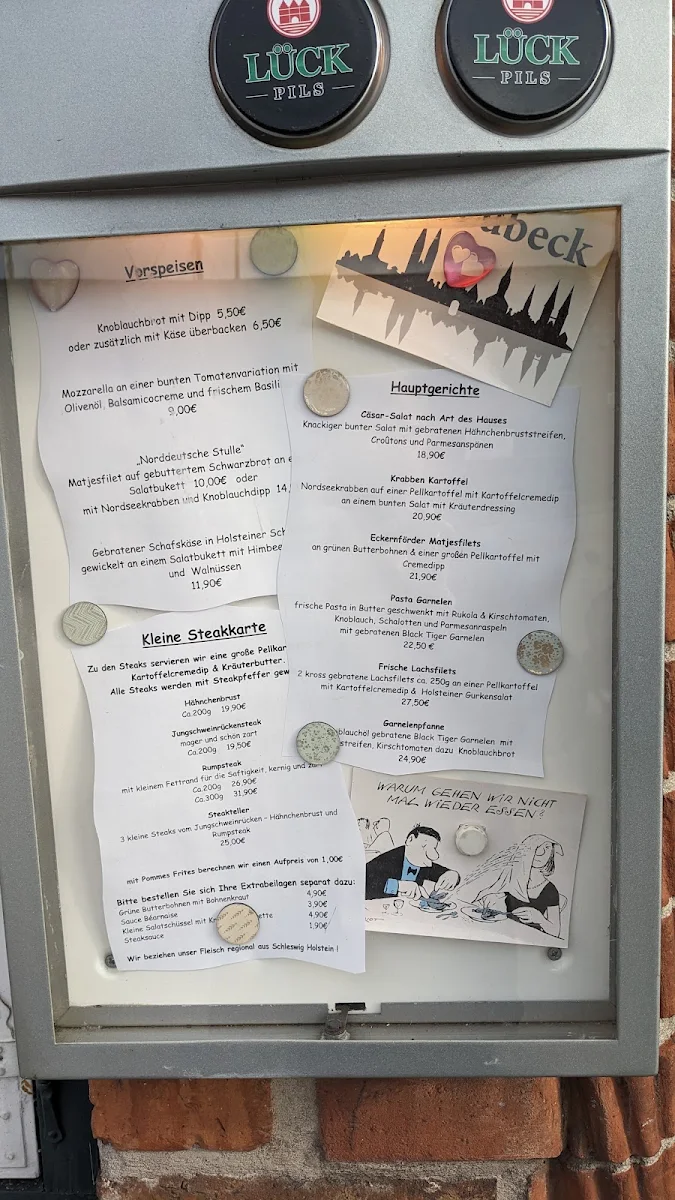 LÜCK
PILS
LÜCK
PILS
übeck
Vorspeisen
Knoblauchbrot mit Dipp 5,50€
oder zusätzlich mit Käse überbacken 6,50€
Mozzarella an einer bunten Tomatenvariation mit
Olivenöl, Balsamicocreme und frischem Basili
9,00€
„Norddeutsche Stulle"
Matjesfilet auf gebuttertem Schwarzbrot an e
Salatbukett 10,00€ oder
mit Nordseekrabben und Knoblauchdipp 14,
Gebratener Schafskäse in Holsteiner Sch
gewickelt an einem Salatbukett mit Himbee
und Walnüssen
11,90€
Hauptgerichte
Cäsar-Salat nach Art des Hauses
Knackiger bunter Salat mit gebratenen Hähnchenbruststreifen,
Croûtons und Parmesanspänen
18,90€
Krabben Kartoffel
Nordseekrabben auf einer Pellkartoffel mit Kartoffelcremedip
an einem bunten Salat mit Kräuterdressing
20,90€
Eckernförder Matjesfilets
an grünen Butterbohnen & einer großen Pellkartoffel mit
Cremedipp
21,90€
Pasta Garnelen
frische Pasta in Butter geschwenkt mit Rukola & Kirschtomaten,
Knoblauch, Schalotten und Parmesanraspeln
mit gebratenen Black Tiger Garnelen
22,50 €
Frische Lachsfilets
2 kross gebratene Lachsfilets ca. 250g an einer Pellkartoffel
mit Kartoffelcremedip & Holsteiner Gurkensalat
27,50€
Garnelenpfanne
blauchöl gebratene Black Tiger Garnelen mit
streifen, Kirschtomaten dazu Knoblauchbrot
24,90€
Kleine Steakkarte
Zu den Steaks servieren wir eine große Pellkar
Kartoffelcremedip & Kräuterbutter.
Alle Steaks werden mit Steakpfeffer gew
Hähnchenbrust
Ca.200g 19,90€
Jungschweinrückensteak
mager und schön zart
Ca.200g 19,50€
Rumpsteak
mit kleinem Fettrand für die Saftigkeit, kernig und
Ca.200g 26,90€
Ca.300g 31,90€
Steakteller
3 kleine Steaks vom Jungschweinrücken - Hähnchenbrust und
Rumpsteak
25,00€
mit Pommes Frites berechnen wir einen Aufpreis von 1,00€
Bitte bestellen Sie sich Ihre Extrabeilagen separat dazu:
Grüne Butterbohnen mit Bohnenkraut 4,90€
Sauce Béarnaise 3,90€
Kleine Salatschüssel mit ette 4,90€
Steaksauce 1,90€
Wir beziehen unser Fleisch regional aus Schleswig Holstein !
WARUM GEHEN WIR NICHT
MAL WIEDER ESSEN?